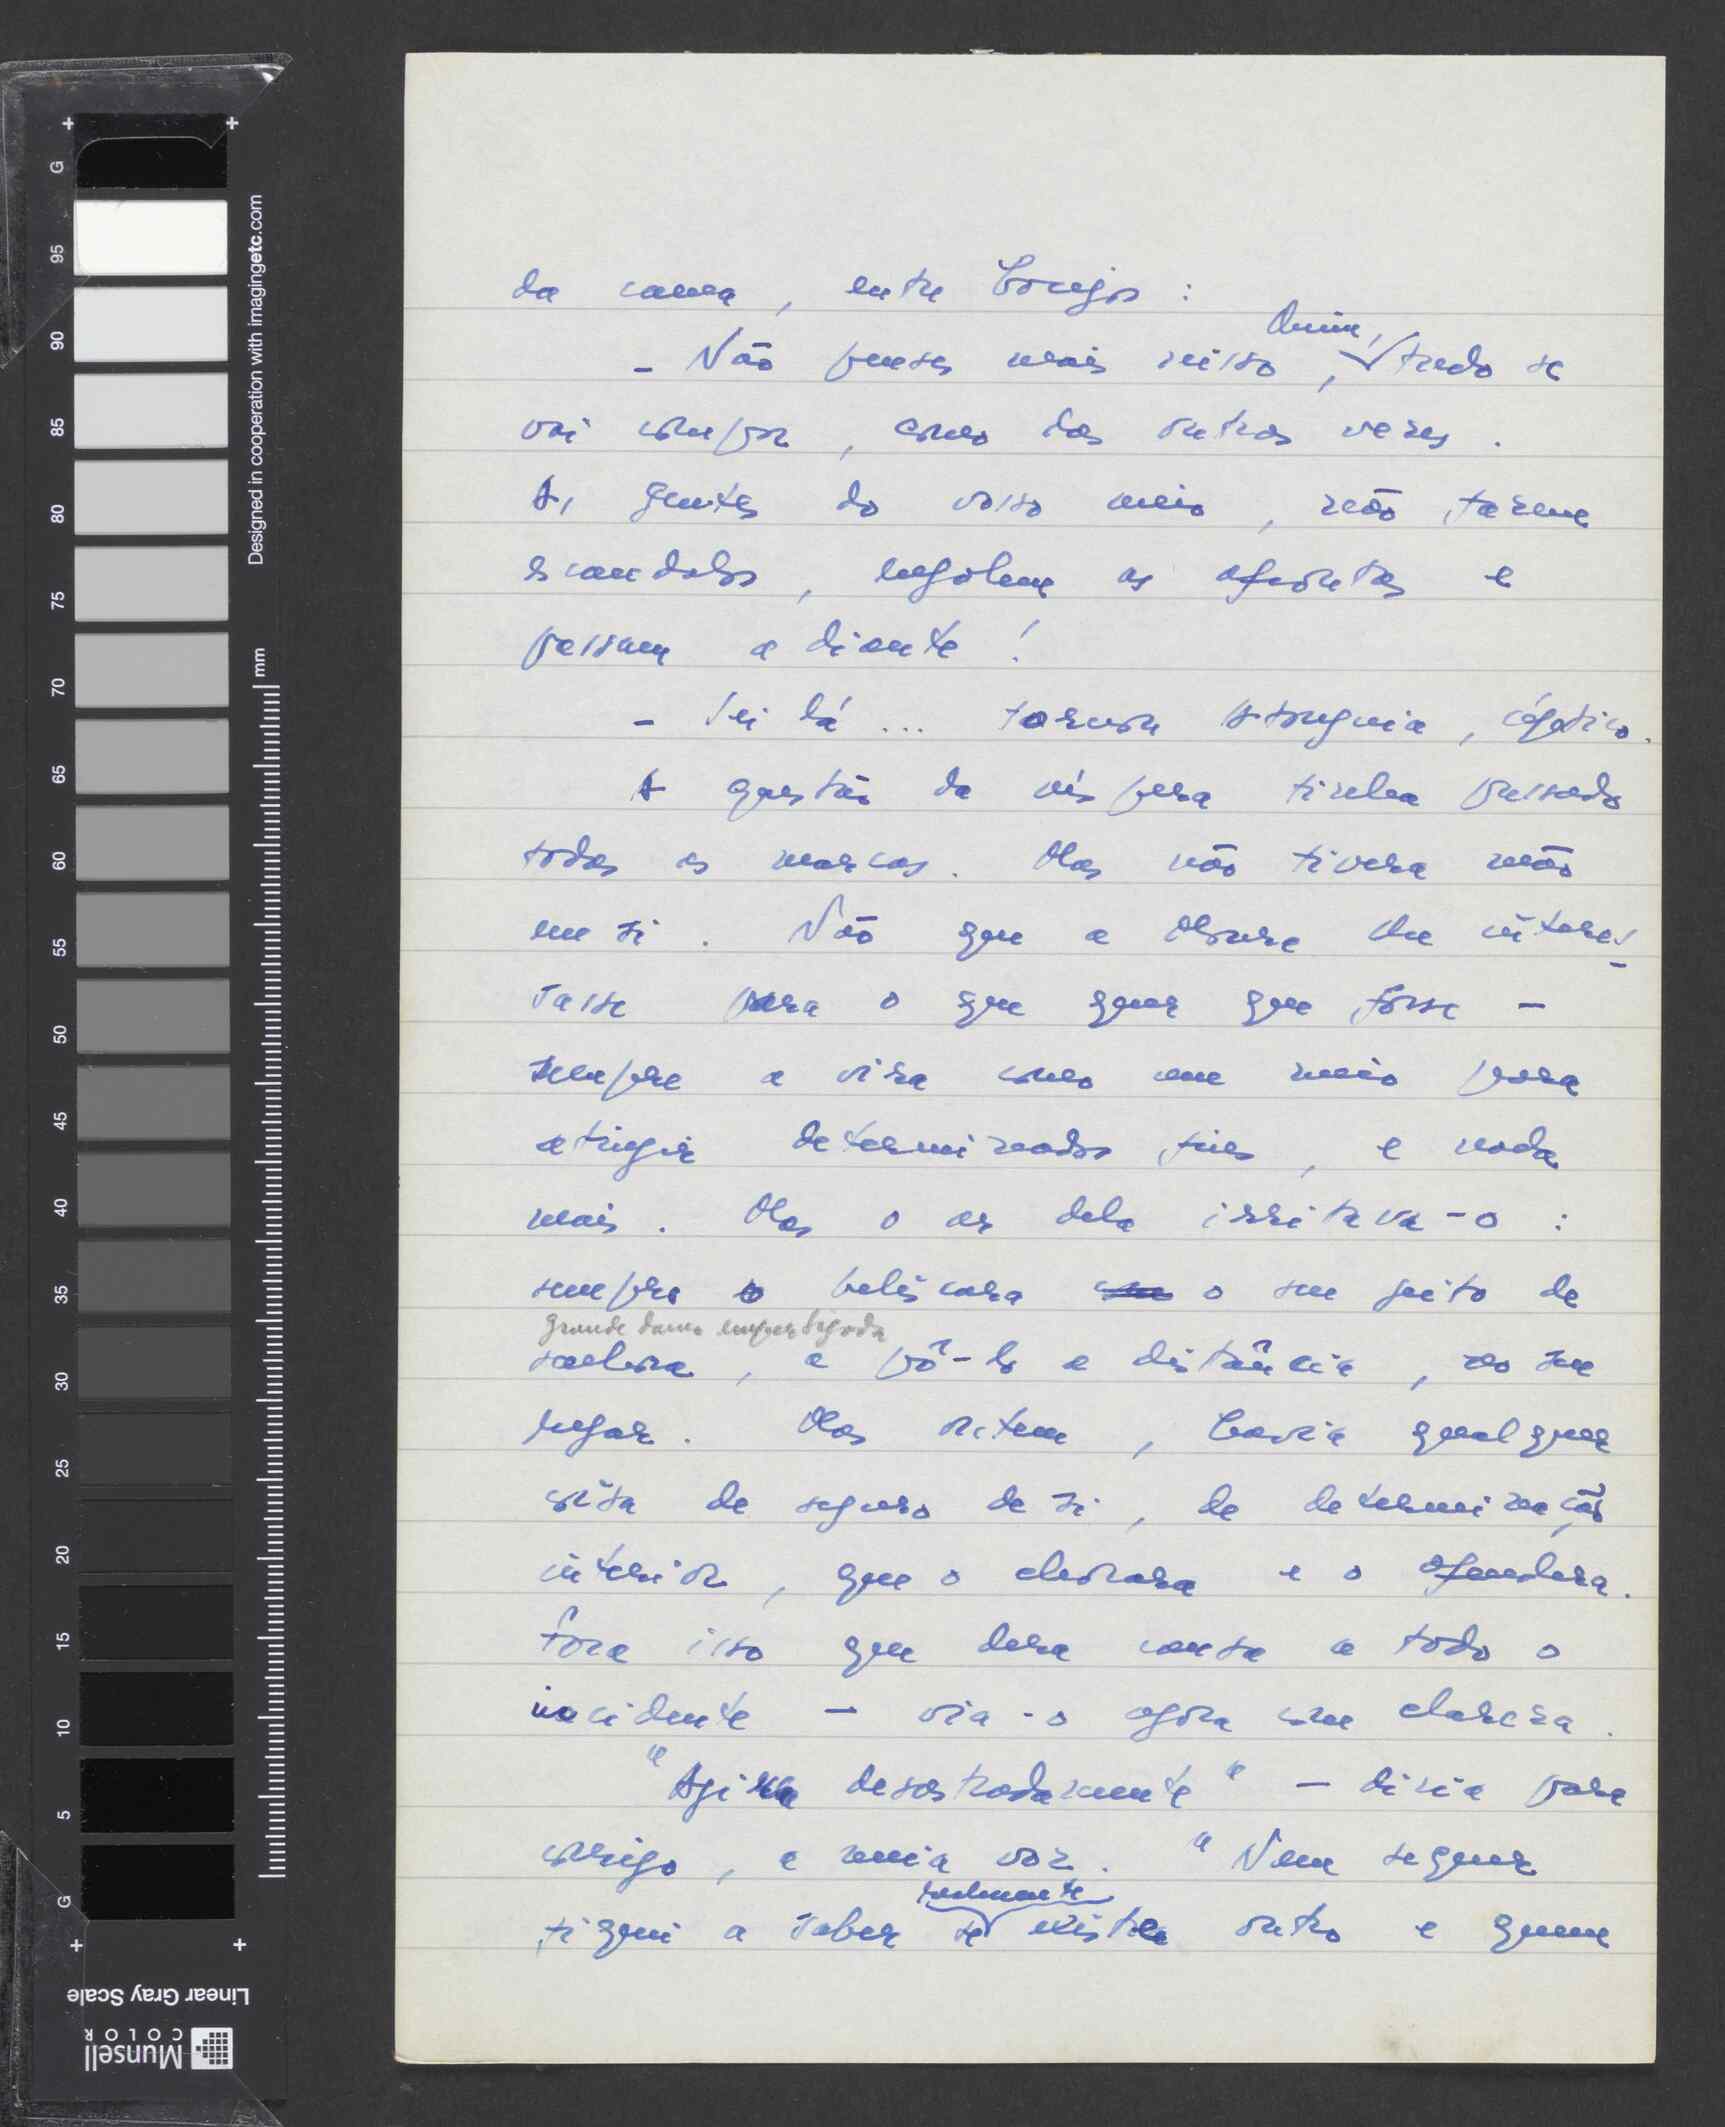 da cama, entre bocejos:
Quim,
– Não penses mais nisso, tudo se
vai compor, como das outras vezes.
As gentes do vosso meio, não fazem
escandalos, engolem as afrontas e
passam adiante!
– Sei lá... tornou, céptico.
A questão da véspera tinha passado
todas as marcas. Mas não tivera mão
em si. Não que a lhe interes-
sasse para o que quer que fosse –
sempre a vira como um meio para
atingir determinados fins, e nada
mais. Mas o ar dela irritava-o:
sempre o beliscara o seu jeito de
grande dama empertigada
senhora, a pô-lo a distância, no seu
lugar. Mas ontem, havia qualquer
coisa de seguro de si, de determinação
interior, que o chocara e o ofendera.
Fôra isso que dera causa a todo o
incidente – via-o agora com clareza.
"Agi desastradamente" – dizia para
consigo, a meia voz. "Nem sequer
realmente
fiquei a saber se existe outro e quem
Designed in cooperation with imagingetc.com
mm
G
95
90
85
80
75
70
65
60
55
50
45
40
35
30
25
20
15
10
5
G
Linear Gray Scale
Munsell
COLOR